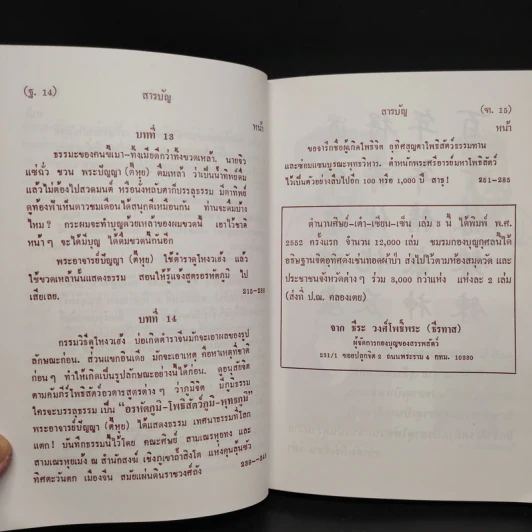 (ฐ. 14)
สารบัญ
หน้า
บทที่ 13
ธรรมะของคนขี้เมา-ทั้งเมียดีกว่าทั้งขวดเหล้า. นายจิว
แซ่ฉั่ว ชวน พระปญญา (ตี้หุย) ดื่มเหล้า
แล้วไม่ต้องไปสวดมนต์ หรือนั่งหลับตาก็บรรลุธรรม มีตาทิพย์
ดูท้องฟ้าเห็นดาวชมเดือนได้สนุกดีเหมือนกัน ท่านจะดื่มบ้าง
ไหม? กระผมจะทำบุญด้วยเหล้าของผมขวดนี้ เอาไว้ชาติ
หน้าๆ จะได้มีบุญ ได้ดื่มขวดนี้กันอีก
พระอาจารย์ปัญญา (ตี้หุย) ใช้ตำราดูโหงวเฮ้ง แล้ว
ใช้ขวดเหล้านั้นแสดงธรรม สอนให้รู้แจ้งสูตรอรหัตภูมิ ไป
เสียเลย.
บทที่ 14
กรรมวิธีดูโหงวเฮ้ง บ่อเกิดตำราจีนมักจะเอาผลของรูป
ลักษณะก่อน. ส่วนแขกอินเดีย มักจะเอาเหตุ คือหาเหตุที่ชาติ
ก่อนๆ ทำให้เกิดเป็นรูปลักษณะอย่างนี้ได้ก่อน.
ตามคัมภีร์โพธิสัตว์อวตารสูตรต่างๆ ว่าภูมิจิต มีภูมิธรรม
ใครจะบรรลุธรรม เป็น "อรหัตภูมิ-โพธิสัตว์ภูมิ-พุทธภูมิ"
พระอาจารย์ปัญญา (ตี้หุย) ได้แสดงธรรม เทศนาธรรมที่โสก
แตก! บันทึกธรรมนี้ไว้โดย คณะศิษย์ สามเณรฟุยทง และ
สามเณรฟุยเม้ง ณ สำนักสงฆ์
ทิศตะวันตก เมืองจีน สมัยแผ่นดินราชวงศ์ถัง
สารบัญ
(ฑ. 15)
หน้า
ขอจารึกชื่อผู้เกิดโพธิจิต อุทิศสูญตาโพธิสัตว์ธรรมทาน
และซ่อมแซมบูรณะพุทธวิหาร. ตำหนักพระศรีอารย์มหาโพธิสัตว์
ไว้เป็นตัวอย่างสืบไปอีก 100 หรือ 1,000 ปี สาธุ! 281-285
ตำนานศิษย์-เต๋า-เซียน-เซ็น เล่ม 5 นี้ ได้พิมพ์ พ.ศ.
2552 ครั้งแรก จำนวน 12,000 เล่ม ชมรมกองบุญกุศลนี้ได้
อธิษฐานจิตอุทิศดังเช่นทอดผ้าป่า ส่งไปไว้ตามห้องสมุดวัด และ
ประชาชนจังหวัดต่างๆ ร่วม 3,000 กว่าแห่ง แห่งละ 2 เล่ม
(ส่งที่ ป.ณ. คลองเตย)
จาก ธีระ วงศ์โพธิ์พระ (ธีรทาส)
ผู้จัดการกองบุญของสรรพสัตว์
231/1 ซอยปลูกจิต 2 ถนนพระราม 4 กทม. 10330